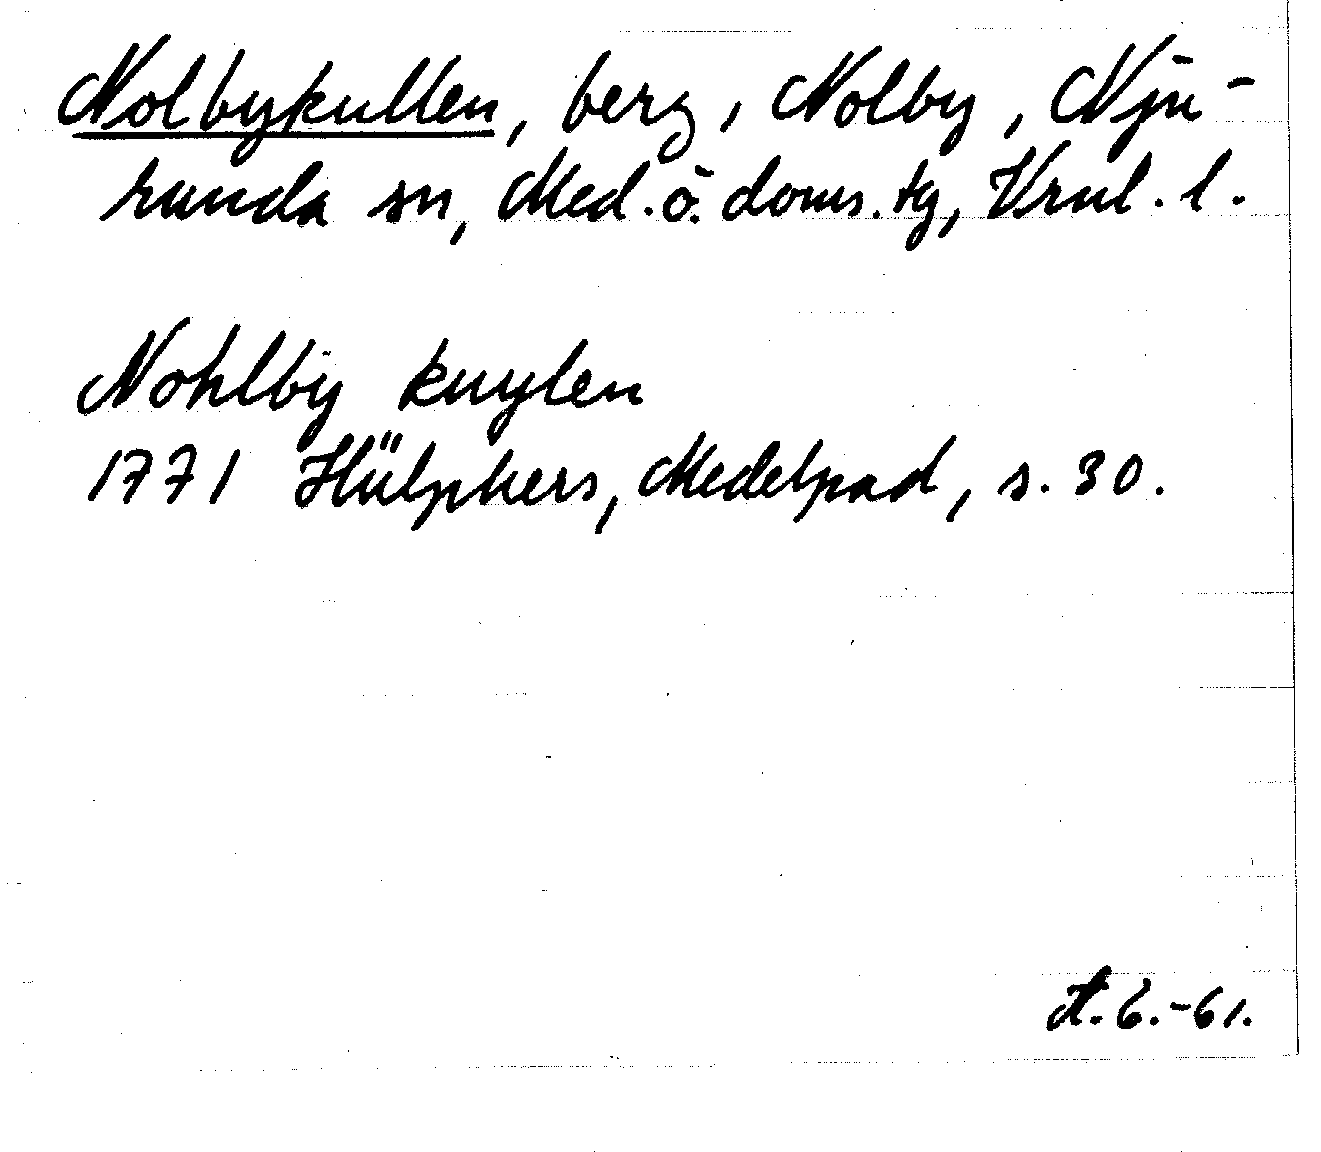 Nolbykullen, berg, Nolby, Nju-
runda sn, Med. ö. doms. tg, Vrnl. l.
Nohlby kuylen
1771 Hülphers, Medelpad, s. 30.
A. B. -61.